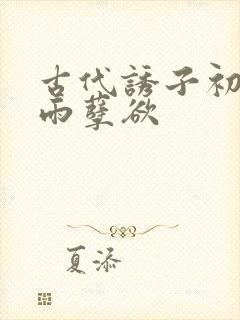 古代誘子初
雨孽欲
夏添